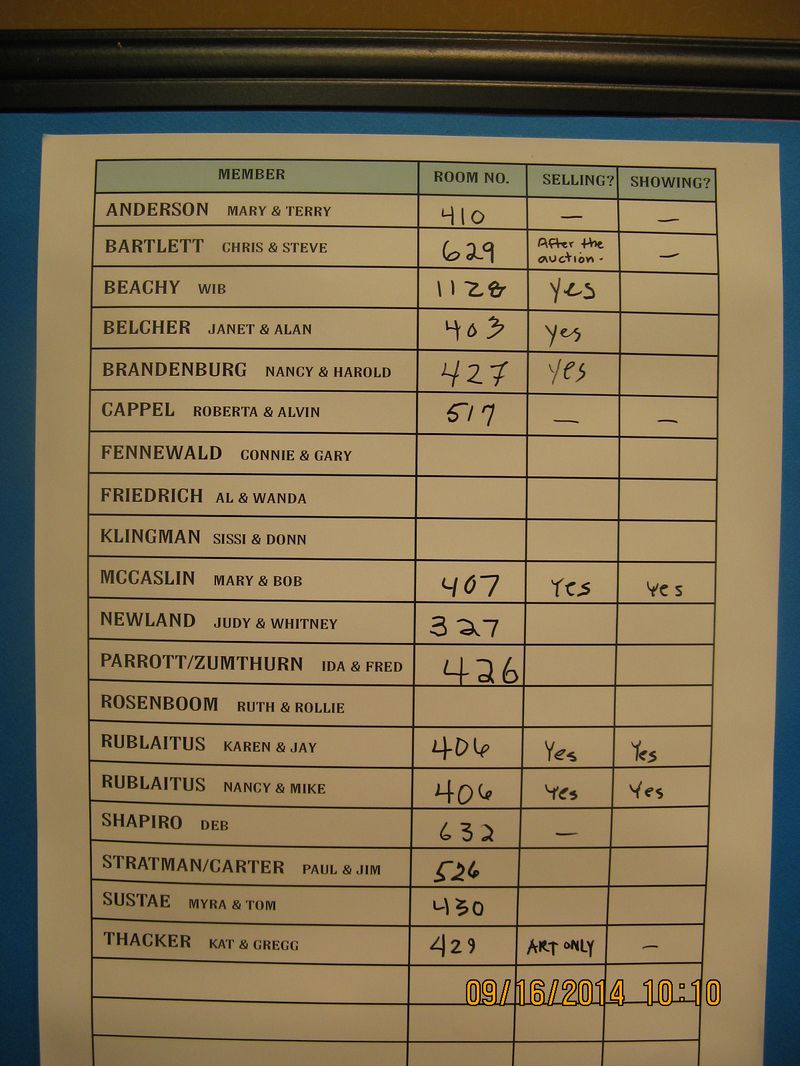 MEMBER ROOM NO. SELLING? SHOWING?
ANDERSON MARY & TERRY 410 — —
BARTLETT CHRIS & STEVE 629 After the auction. —
BEACHY WIB 1128 yes
BELCHER JANET & ALAN 403 yes
BRANDENBURG NANCY & HAROLD 427 yes
CAPPEL ROBERTA & ALVIN 517 — —
FENNEWALD CONNIE & GARY
FRIEDRICH AL & WANDA
KLINGMAN SISSI & DONN
MCCASLIN MARY & BOB 407 Yes yes
NEWLAND JUDY & WHITNEY 327
PARROTT/ZUMTHURN IDA & FRED 426
ROSENBOOM RUTH & ROLLIE
RUBLAITUS KAREN & JAY 406 Yes Yes
RUBLAITUS NANCY & MIKE 406 Yes Yes
SHAPIRO DEB 632 —
STRATMAN/CARTER PAUL & JIM 526
SUSTAE MYRA & TOM 430
THACKER KAT & GREGG 429 ART ONLY —
09/16/2014 10:10